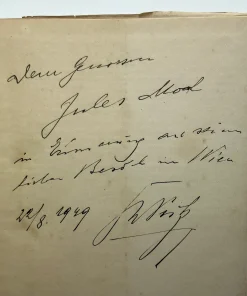 Dem Genossen
Jules Moch
in Erinnerung an seinen
lieben Besuch in Wien
22/8. 1949